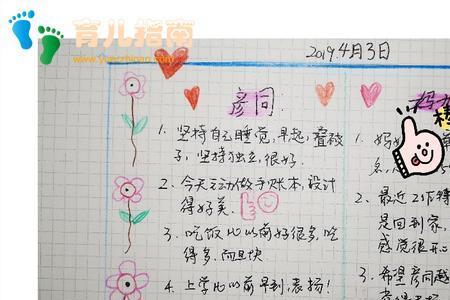 育儿指南
www.yuerzhinan.com
2019.4月3日
彦同:
1. 坚持自己睡觉,早起,叠被
子,坚持独立,很好.
2、今天主动做手账本,设计
得好美.
3、吃饭比以前好很多,吃
得多,而且快
4、上学比以前早到,表扬!
妈
1. 妈
名,
2、最近工作
是回到家,
感觉很开心
3、希望彦同越